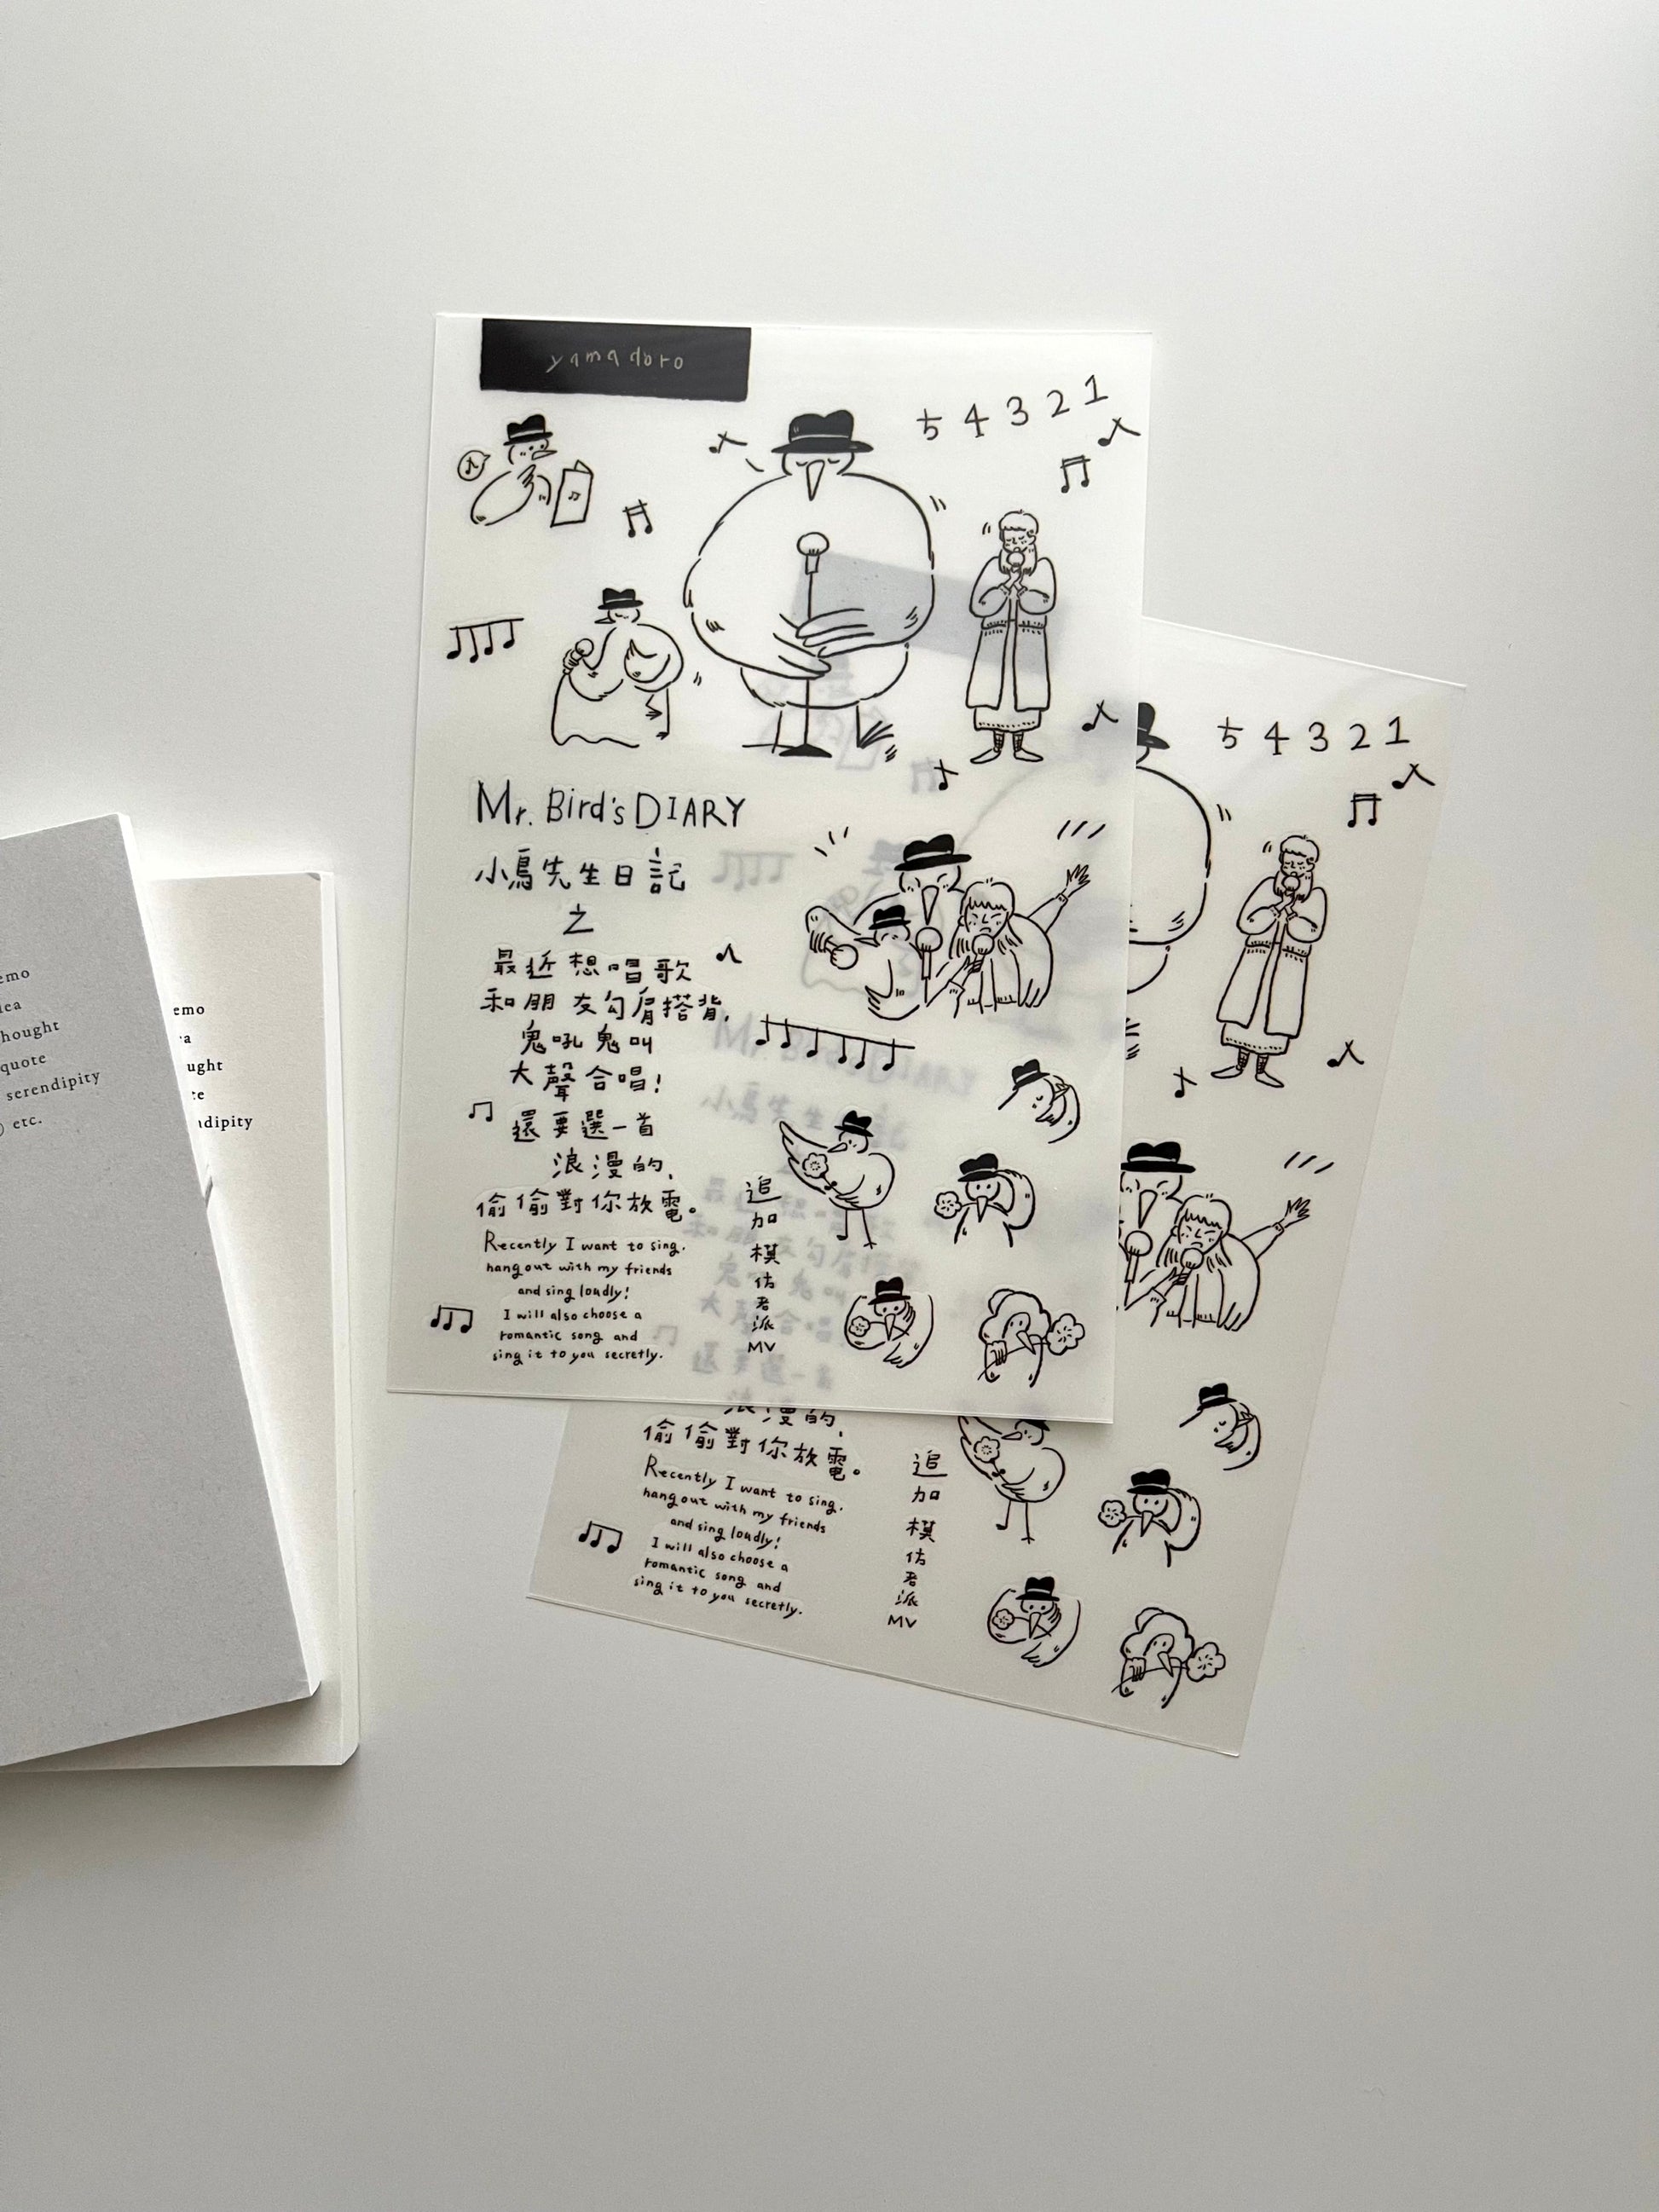 yamadoro
5 4 3 2 1
Mr. Bird's DIARY
小鳥先生日記
之
最近想唱歌
和朋友勾肩搭背,
鬼吼鬼叫
大聲合唱!
還要選一首
浪漫的,
偷偷對你放電。
Recently I want to sing.
hang out with my friends
and sing loudly!
I will also choose a
romantic song and
sing it to you secretly.
追
加
棋
佑
君
派
MV
5 4 3 2 1
浪漫的,
偷偷對你放電。
Recently I want to sing.
hang out with my friends
and sing loudly!
I will also choose a
romantic song and
sing it to you secretly.
追
加
棋
佑
君
派
MV
emo
ea
hought
quote
serendipity
etc.
emo
a
ught
te
ndipity